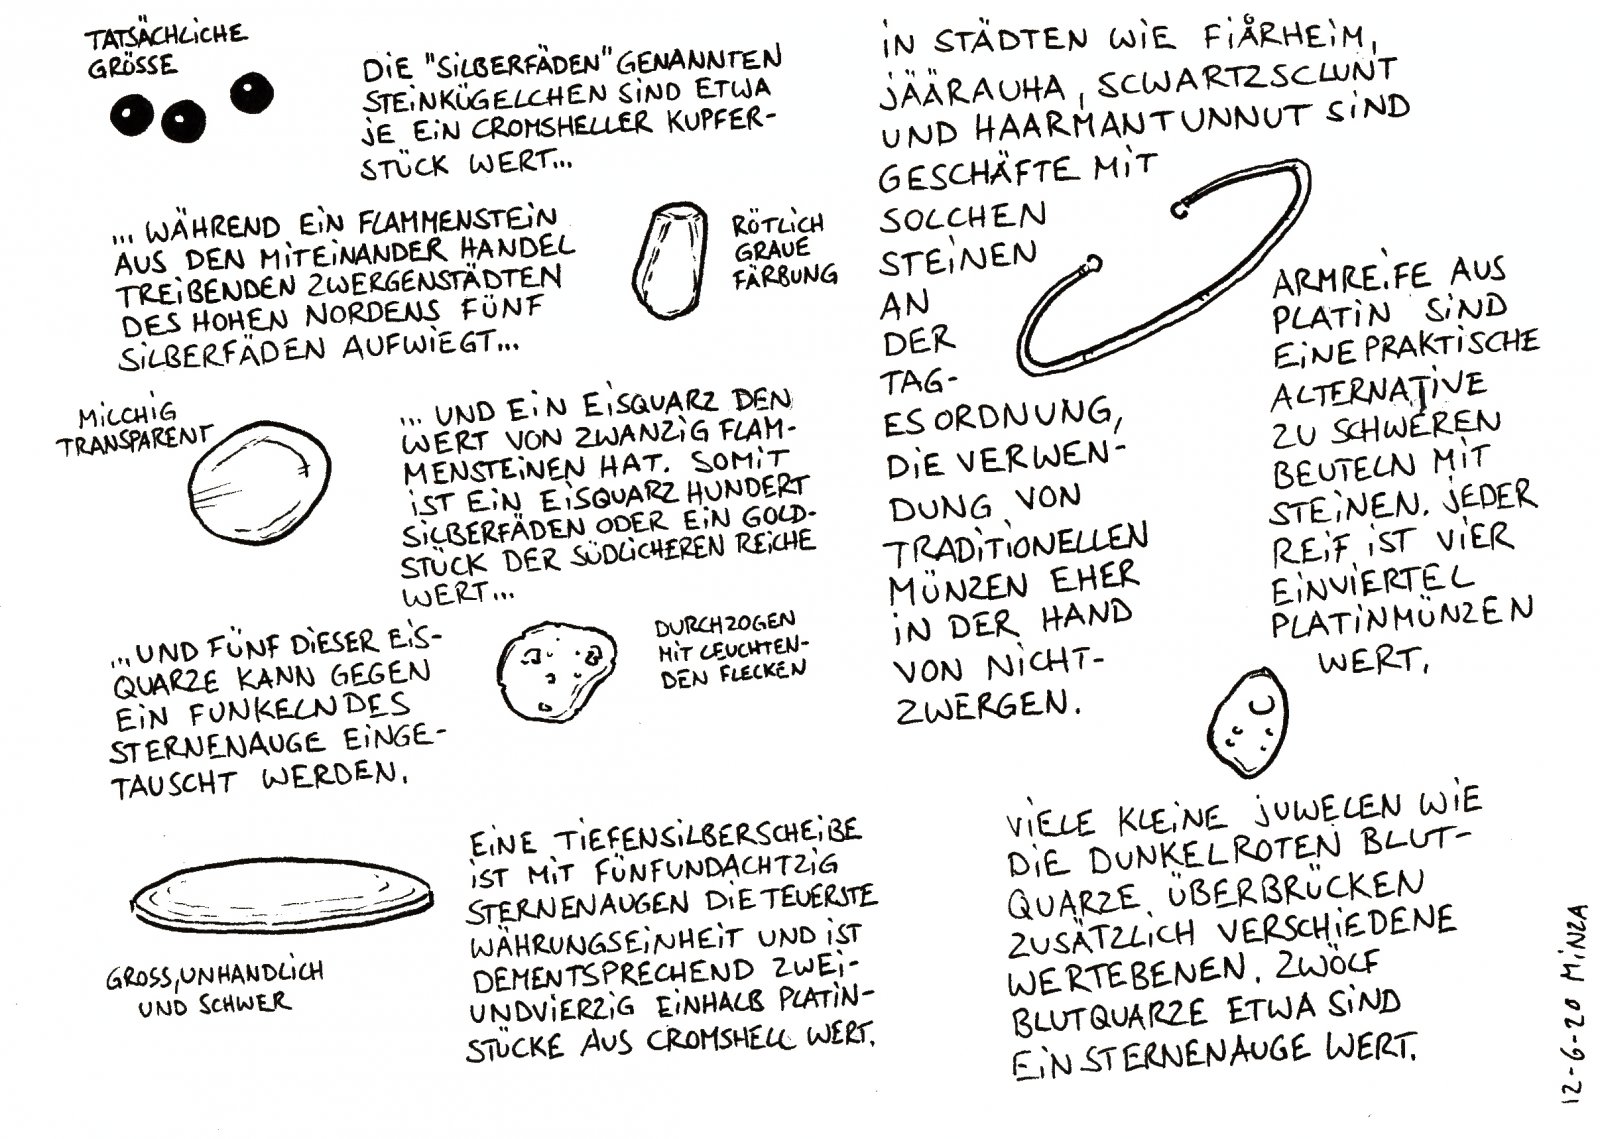 TATSÄCHLICHE
GRÖSSE
DIE "SILBERFÄDEN" GENANNTEN
STEINKÜGELCHEN SIND ETWA
JE EIN CROMSHELLER KUPFER-
STÜCK WERT...
... WÄHREND EIN FLAMMENSTEIN
AUS DEN MITEINANDER HANDEL
TREIBENDEN ZWERGENSTÄDTEN
DES HOHEN NORDENS FÜNF
SILBERFÄDEN AUFWIEGT...
RÖTLICH
GRAUE
FÄRBUNG
MILCHIG
TRANSPARENT
... UND EIN EISQUARZ DEN
WERT VON ZWANZIG FLAM-
MENSTEINEN HAT. SOMIT
IST EIN EISQUARZ HUNDERT
SILBERFÄDEN ODER EIN GOLD-
STÜCK DER SÜDLICHEREN REICHE
WERT...
...UND FÜNF DIESER EIS-
QUARZE KANN GEGEN
EIN FUNKELNDES
STERNENAUGE EINGE-
TAUSCHT WERDEN.
DURCHZOGEN
MIT LEUCHTEN-
DEN FLECKEN
GROSS, UNHANDLICH
UND SCHWER
EINE TIEFENSILBERSCHEIBE
IST MIT FÜNFUNDACHTZIG
STERNENAUGEN DIE TEUERSTE
WÄHRUNGSEINHEIT UND IST
DEMENTSPRECHEND ZWEI-
UNDVIERZIG EINHALB PLATIN-
STÜCKE AUS CROMSHELL WERT.
IN STÄDTEN WIE FIÅRHEIM,
JÄÄRAUHA, SCWARTZSCLUNT
UND HAARMANTUNNUT SIND
GESCHÄFTE MIT
SOLCHEN
STEINEN
AN
DER
TAG-
ESORDNUNG,
DIE VERWEN-
DUNG VON
TRADITIONELLEN
MÜNZEN EHER
IN DER HAND
VON NICHT-
ZWERGEN.
ARMREIFE AUS
PLATIN SIND
EINE PRAKTISCHE
ALTERNATIVE
ZU SCHWEREN
BEUTELN MIT
STEINEN. JEDER
REIF IST VIER
EINVIERTEL
PLATINMÜNZEN
WERT.
VIELE KLEINE JUWELEN WIE
DIE DUNKELROTEN BLUT-
QUARZE ÜBERBRÜCKEN
ZUSÄTZLICH VERSCHIEDENE
WERTEBENEN. ZWÖLF
BLUTQUARZE ETWA SIND
EIN STERNENAUGE WERT.
12-6-20 MINZA